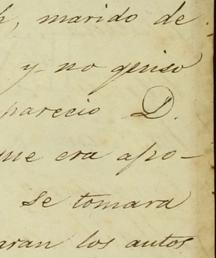 h, marido de
y no quiso
parecio D.
que era apo-
se tomara
aran los autos